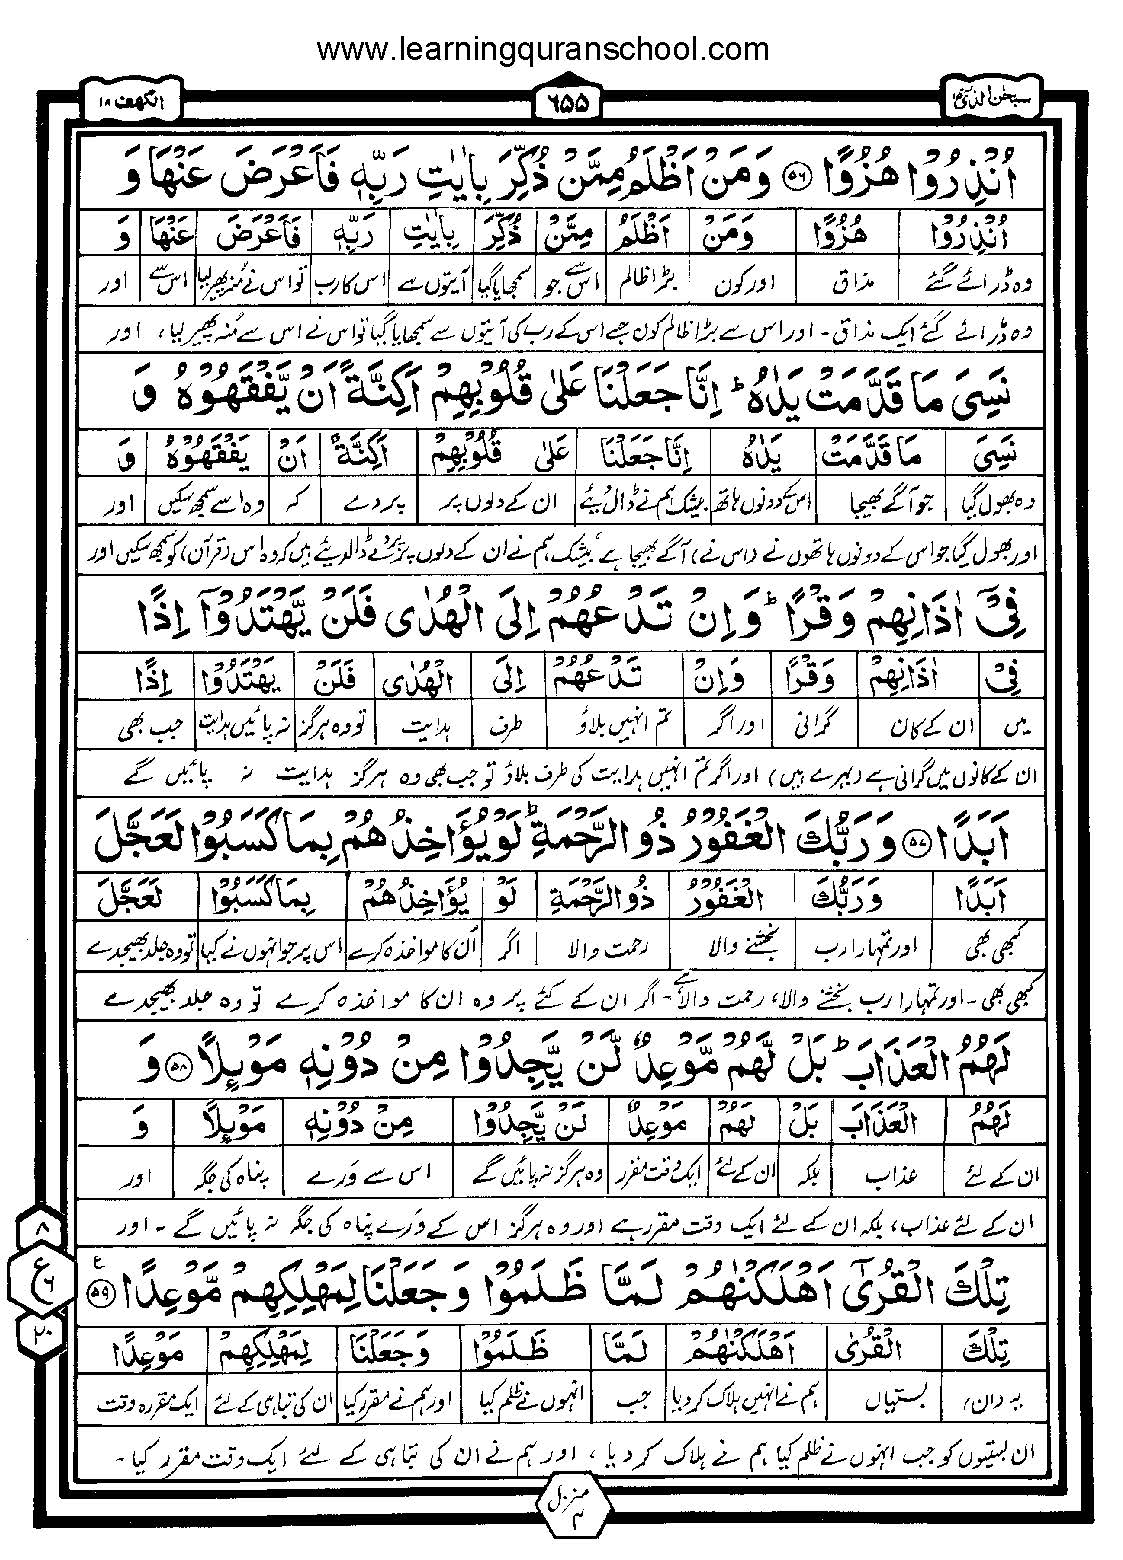 www.learningquranschool.com
سبحٰن الذی ١٥ ٦٥٥ الکهف ١٨
اُنْذِرُوْا هُزُوًا ﴿٥٦﴾ وَمَنْ اَظْلَمُ مِمَّنْ ذُكِّرَ بِاٰيٰتِ رَبِّهٖ فَاَعْرَضَ عَنْهَا وَ
اُنْذِرُوْا هُزُوًا وَمَنْ اَظْلَمُ مِمَّنْ ذُكِّرَ بِاٰيٰتِ رَبِّهٖ فَاَعْرَضَ عَنْهَا وَ
وہ ڈرائے گئے مذاق اور کون بڑا ظالم اس سے جو سمجھایا گیا آیتوں سے اس کا رب تو اس نے منہ پھیر لیا اس سے اور
وہ ڈرائے گئے ایک مذاق۔ اور اس سے بڑا ظالم کون جسے اس کے رب کی آیتوں سے سمجھایا گیا تو اس نے اس سے مُنہ پھیر لیا، اور
نَسِىَ مَا قَدَّمَتْ يَدٰهُ ؕ اِنَّا جَعَلْنَا عَلٰى قُلُوْبِهِمْ اَكِنَّةً اَنْ يَّفْقَهُوْهُ وَ
نَسِىَ مَا قَدَّمَتْ يَدٰهُ اِنَّا جَعَلْنَا عَلٰى قُلُوْبِهِمْ اَكِنَّةً اَنْ يَفْقَهُوْهُ وَ
وہ بھول گیا جو آگے بھیجا اس کے دونوں ہاتھ بیشک ہم نے ڈال دیئے ان کے دلوں پر پردے کہ وہ اسے سمجھ سکیں اور
اور بھول گیا جو اس کے دونوں ہاتھوں نے (اس نے) آگے بھیجا ہے، بیشک ہم نے ان کے دلوں پر پردے ڈال دیئے ہیں کہ وہ اس (قرآن) کو سمجھ سکیں اور
فِىْٓ اٰذَانِهِمْ وَقْرًا ؕ وَاِنْ تَدْعُهُمْ اِلَى الْهُدٰى فَلَنْ يَّهْتَدُوْٓا اِذًا
فِىْٓ اٰذَانِهِمْ وَقْرًا وَاِنْ تَدْعُهُمْ اِلَى الْهُدٰى فَلَنْ يَهْتَدُوْٓا اِذًا
میں ان کے کان گرانی اور اگر تم انہیں بلاؤ طرف ہدایت تو وہ ہرگز نہ پائیں ہدایت جب بھی
ان کے کانوں میں گرانی ہے (بہرے ہیں) اور اگر تم انہیں ہدایت کی طرف بلاؤ تو جب بھی وہ ہرگز ہدایت نہ پائیں گے
اَبَدًا ﴿٥٧﴾ وَرَبُّكَ الْغَفُوْرُ ذُو الرَّحْمَةِ ؕ لَوْ يُؤَاخِذُهُمْ بِمَا كَسَبُوْا لَعَجَّلَ
اَبَدًا وَرَبُّكَ الْغَفُوْرُ ذُو الرَّحْمَةِ لَوْ يُؤَاخِذُهُمْ بِمَا كَسَبُوْا لَعَجَّلَ
کبھی بھی اور تمہارا رب بخشنے والا رحمت والا اگر اُن کا مواخذہ کرے اس پر جو انہوں نے کیا تو وہ جلد بھیجدے
کبھی بھی۔ اور تمہارا رب بخشنے والا، رحمت والا ہے۔ اگر ان کے کئے پر وہ ان کا مواخذہ کرے تو وہ جلد بھیجدے
لَهُمُ الْعَذَابَ ؕ بَلْ لَّهُمْ مَّوْعِدٌ لَّنْ يَّجِدُوْا مِنْ دُوْنِهٖ مَوْئِلًا ﴿٥٨﴾ وَ
لَهُمُ الْعَذَابَ بَلْ لَهُمْ مَوْعِدٌ لَنْ يَّجِدُوْا مِنْ دُوْنِهٖ مَوْئِلًا وَ
ان کے لئے عذاب بلکہ ان کے لئے ایک وقت مقرر وہ ہرگز نہ پائیں گے اس سے وَرے پناہ کی جگہ اور
ان کے لئے عذاب، بلکہ ان کے لئے ایک وقت مقرر ہے اور وہ ہرگز اس کے وَرے پناہ کی جگہ نہ پائیں گے ۔ اور
٨
ع ٦
٢٠
تِلْكَ الْقُرٰٓى اَهْلَكْنٰهُمْ لَمَّا ظَلَمُوْا وَجَعَلْنَا لِمَهْلِكِهِمْ مَّوْعِدًا ﴿٥٩﴾ ع
تِلْكَ الْقُرٰٓى اَهْلَكْنٰهُمْ لَمَّا ظَلَمُوْا وَجَعَلْنَا لِمَهْلِكِهِمْ مَوْعِدًا
یہ (ان) بستیاں ہم نے انہیں ہلاک کر دیا جب انہوں نے ظلم کیا اور ہم نے مقرر کیا ان کی تباہی کے لئے ایک مقررہ وقت
ان بستیوں کو جب انہوں نے ظلم کیا ہم نے ہلاک کر دیا، اور ہم نے ان کی تباہی کے لئے ایک وقت مقرر کیا۔
منزل ٤